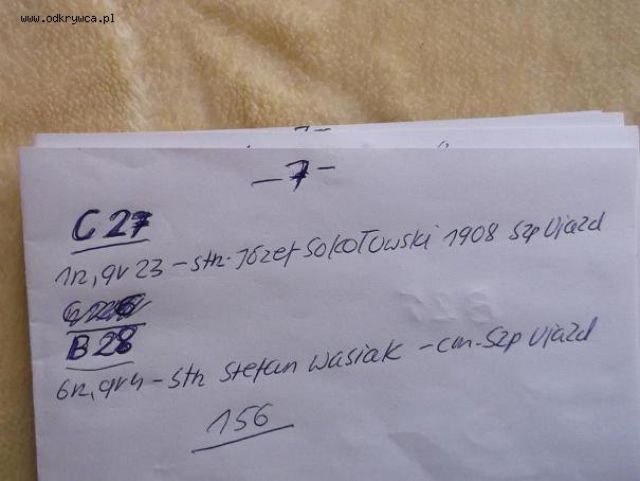 www.odkrywca.pl
-7-
C 27
1rz, gr 23 - str. Józef Sokołowski 1908 Szp Ujazd
B 28
6rz, gr 4 - str Stefan Wasiak - cm. Szp Ujazd
156